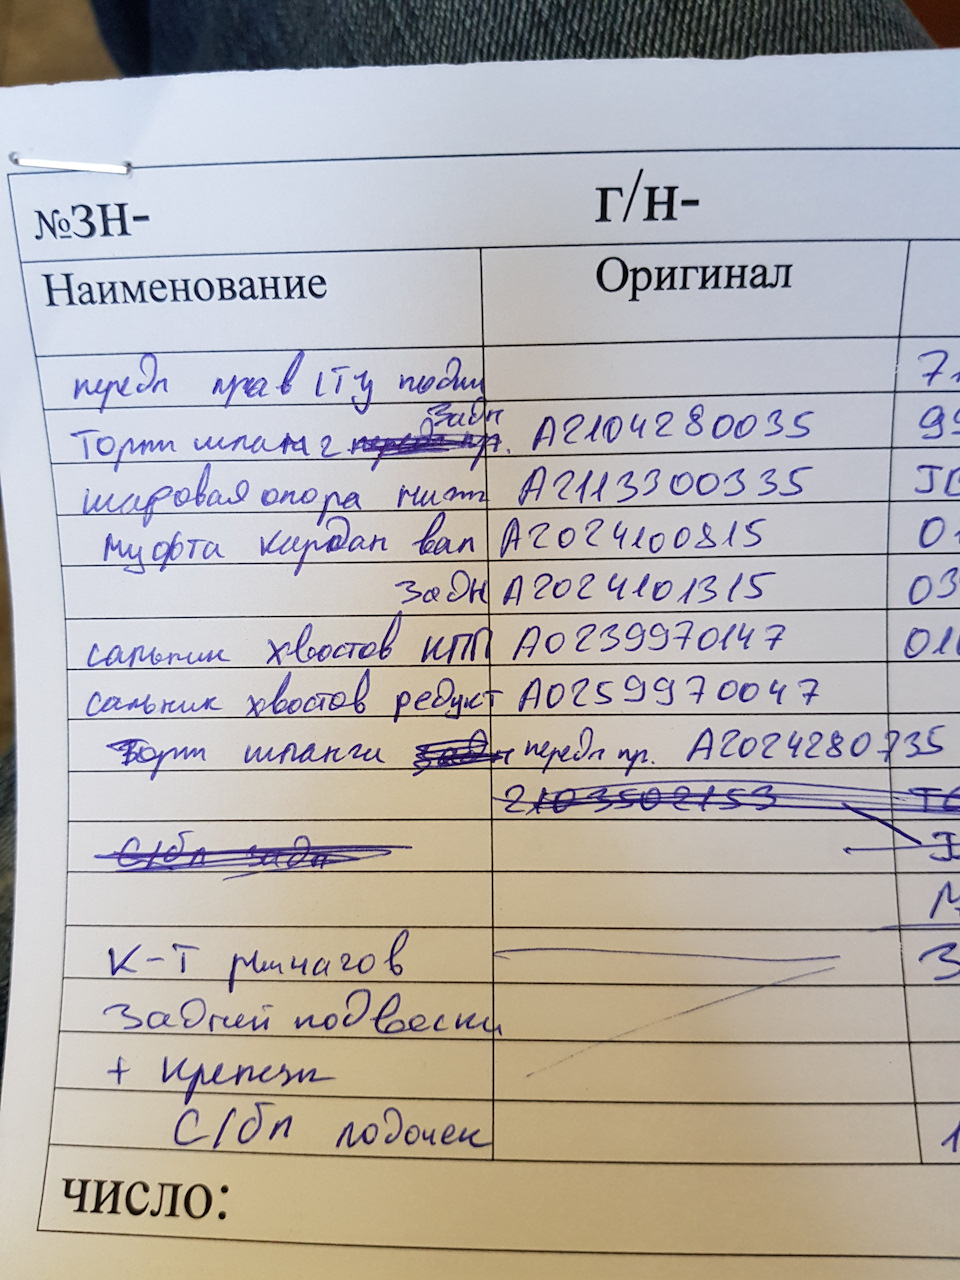 №ЗН- г/н-
Наименование Оригинал
передн прав СТУ подш 7
Торм шланг задн пр. A2104280035 99
шаровая опора нижн A2113300335 JB
муфта кардан вал A2024100815 0
задн A2024101315 03
сальник хвостов КПП A0239970147 01
сальник хвостов редукт A0259970047
Торм шланги передн пр. A2024280735
2103502153
С/бл задн
К-Т рычагов 3
Задней подвески
+ крепеж
С/бл лодочек 1
число: